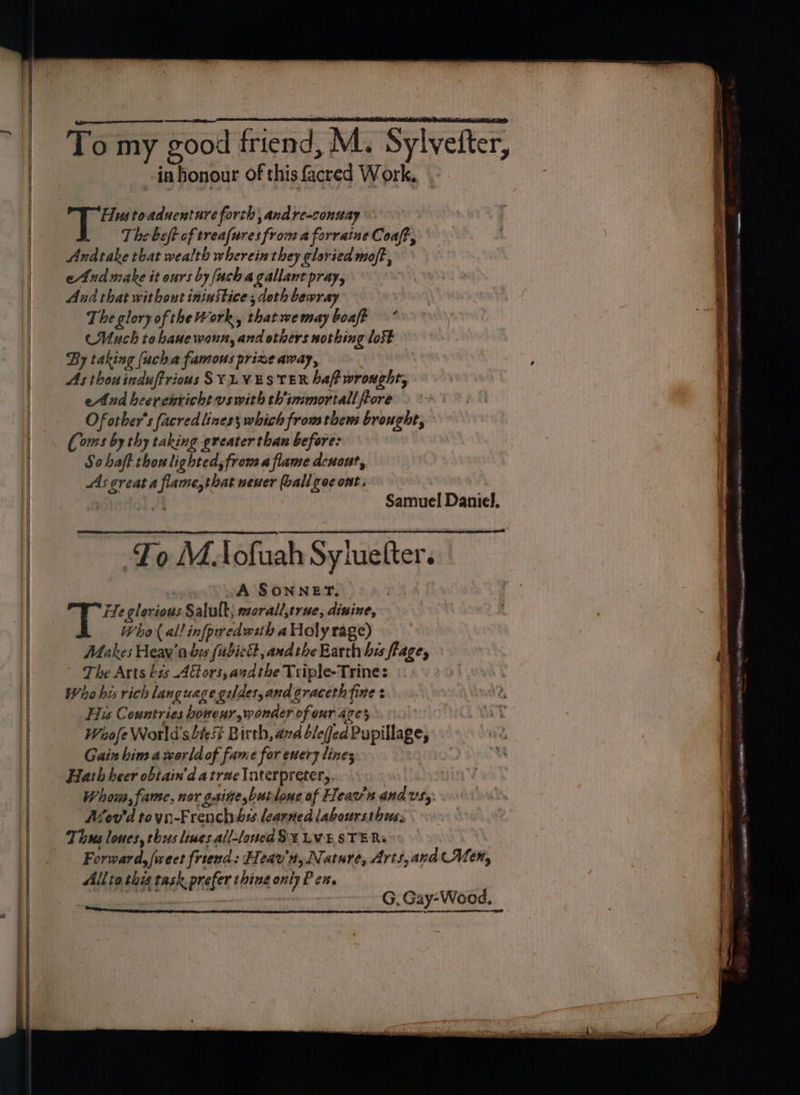 To my good friend, M. Sylveſter,
in honour of this ſacred Work.
THus to aduenture forth, and re-conuay
The beſt of treaſures from a forraine Coaſt,
And take that wealth wherein they gloried moſt,
And make it ours by ſuch a gallant pray,
And that without iniuſtice; doth bewray
The glory of the Work, that we may boaſt
Much to haue wonn, and others nothing loſt
By taking ſuch a famous prize away,
As thou induſtrious SYLVESTER haſt wrought,
And heer enricht vs with th'immortall ſtore
Of other's ſacred lines; which from them brought,
Coms by thy taking greater than before:
So haſt thou lighted, from a flame deuout,
As great a flame, that neuer ſhall goe out.
Samuel Daniel.
To M. Ioſuah Sylueſter.
A SONNET.
THe glorious Saluſt, morall, true, diuine,
Who (all inſpired with a Holy rage)
Makes Heav'n his ſubiect, and the Earth his ſtage,
The Arts his Actors, and the Triple-Trine:
Who his rich language gildes, and graceth fine
His Countries honour, wonder of our age;
Whoſe World's bleſt Birth, and bleſſed Pupillage,
Gain him a world of fame for euery line;
Hath heer obtain'd a true Interpreter,
Whom, fame, nor gaine, but loue of Heav'n and vs,
Mov'd to vn-French his learned labours thus.
Thus loues, thus liues all-loued SYLVESTER.
Forward, ſweet friend: Heav'n, Nature, Arts, and Men,
All to this task prefer thine only Pen.
G. Gay-Wood.